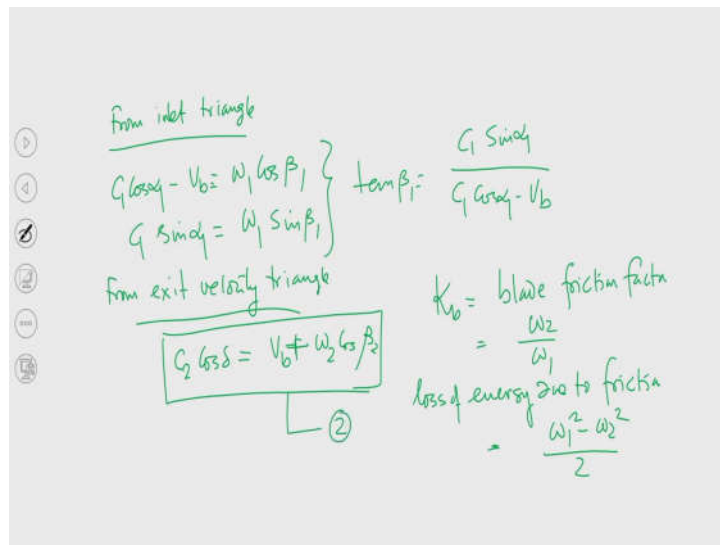 From inlet triangle
C₁ cosα₁ - V_b = ω₁ cos β₁
C₁ sinα₁ = ω₁ sin β₁
tan β₁ = C₁ sinα₁ / C₁ cosα₁ - V_b
From exit velocity triangle
C₂ cosδ = V_b + ω₂ cos β₂
②
K_b = blade friction factor
= ω₂ / ω₁
loss of energy due to friction
= ω₁² - ω₂² / 2